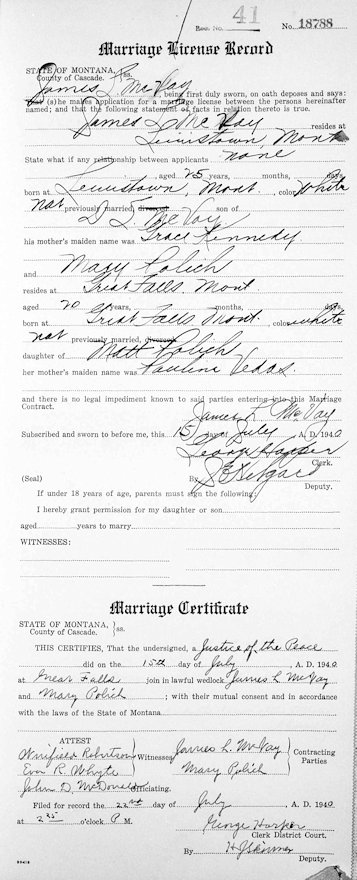 Book No. 41 No. 18788
Marriage License Record
STATE OF MONTANA, } ss.
County of Cascade.
James L. McVay being first duly sworn, on oath deposes and says:
That (s)he makes application for a marriage license between the persons hereinafter
named; and that the following statement of facts in relation thereto is true.
James L. McVay resides at
Lewistown, Mont
State what if any relationship between applicants none
, aged 25 years, months, days
born at Lewistown, Mont. , color White
not previously married, divorced son of
D L McVay
his mother's maiden name was Grace Kennedy
and Mary Polich
resides at Great Falls Mont
aged 20 years, months, days,
born at Great Falls Mont. , color white
not previously married, divorced
daughter of Matt Polich
her mother's maiden name was Paulina Vedas.
and there is no legal impediment known to said parties entering into this Marriage
Contract.
James L McVay
Subscribed and sworn to before me, this 15 day of July A. D. 1940
George Harper
Clerk.
(Seal) By
Deputy.
If under 18 years of age, parents must sign the following:
I hereby grant permission for my daughter or son
aged years to marry
WITNESSES:
Marriage Certificate
STATE OF MONTANA, } ss.
County of Cascade.
THIS CERTIFIES, That the undersigned, a Justice of the Peace
did on the 15th day of July , A. D. 1940
at Great Falls join in lawful wedlock James L. McVay
and Mary Polich ; with their mutual consent and in accordance
with the laws of the State of Montana
ATTEST
Winifield Robertson } Witnesses James L. McVay } Contracting
Eva R. Whyte Mary Polich Parties
John D. McDonald Officiating.
Filed for record the 22nd day of July , A. D. 1940
at 2 35 o'clock P M.
George Harper
Clerk District Court.
By H J Skinner
Deputy